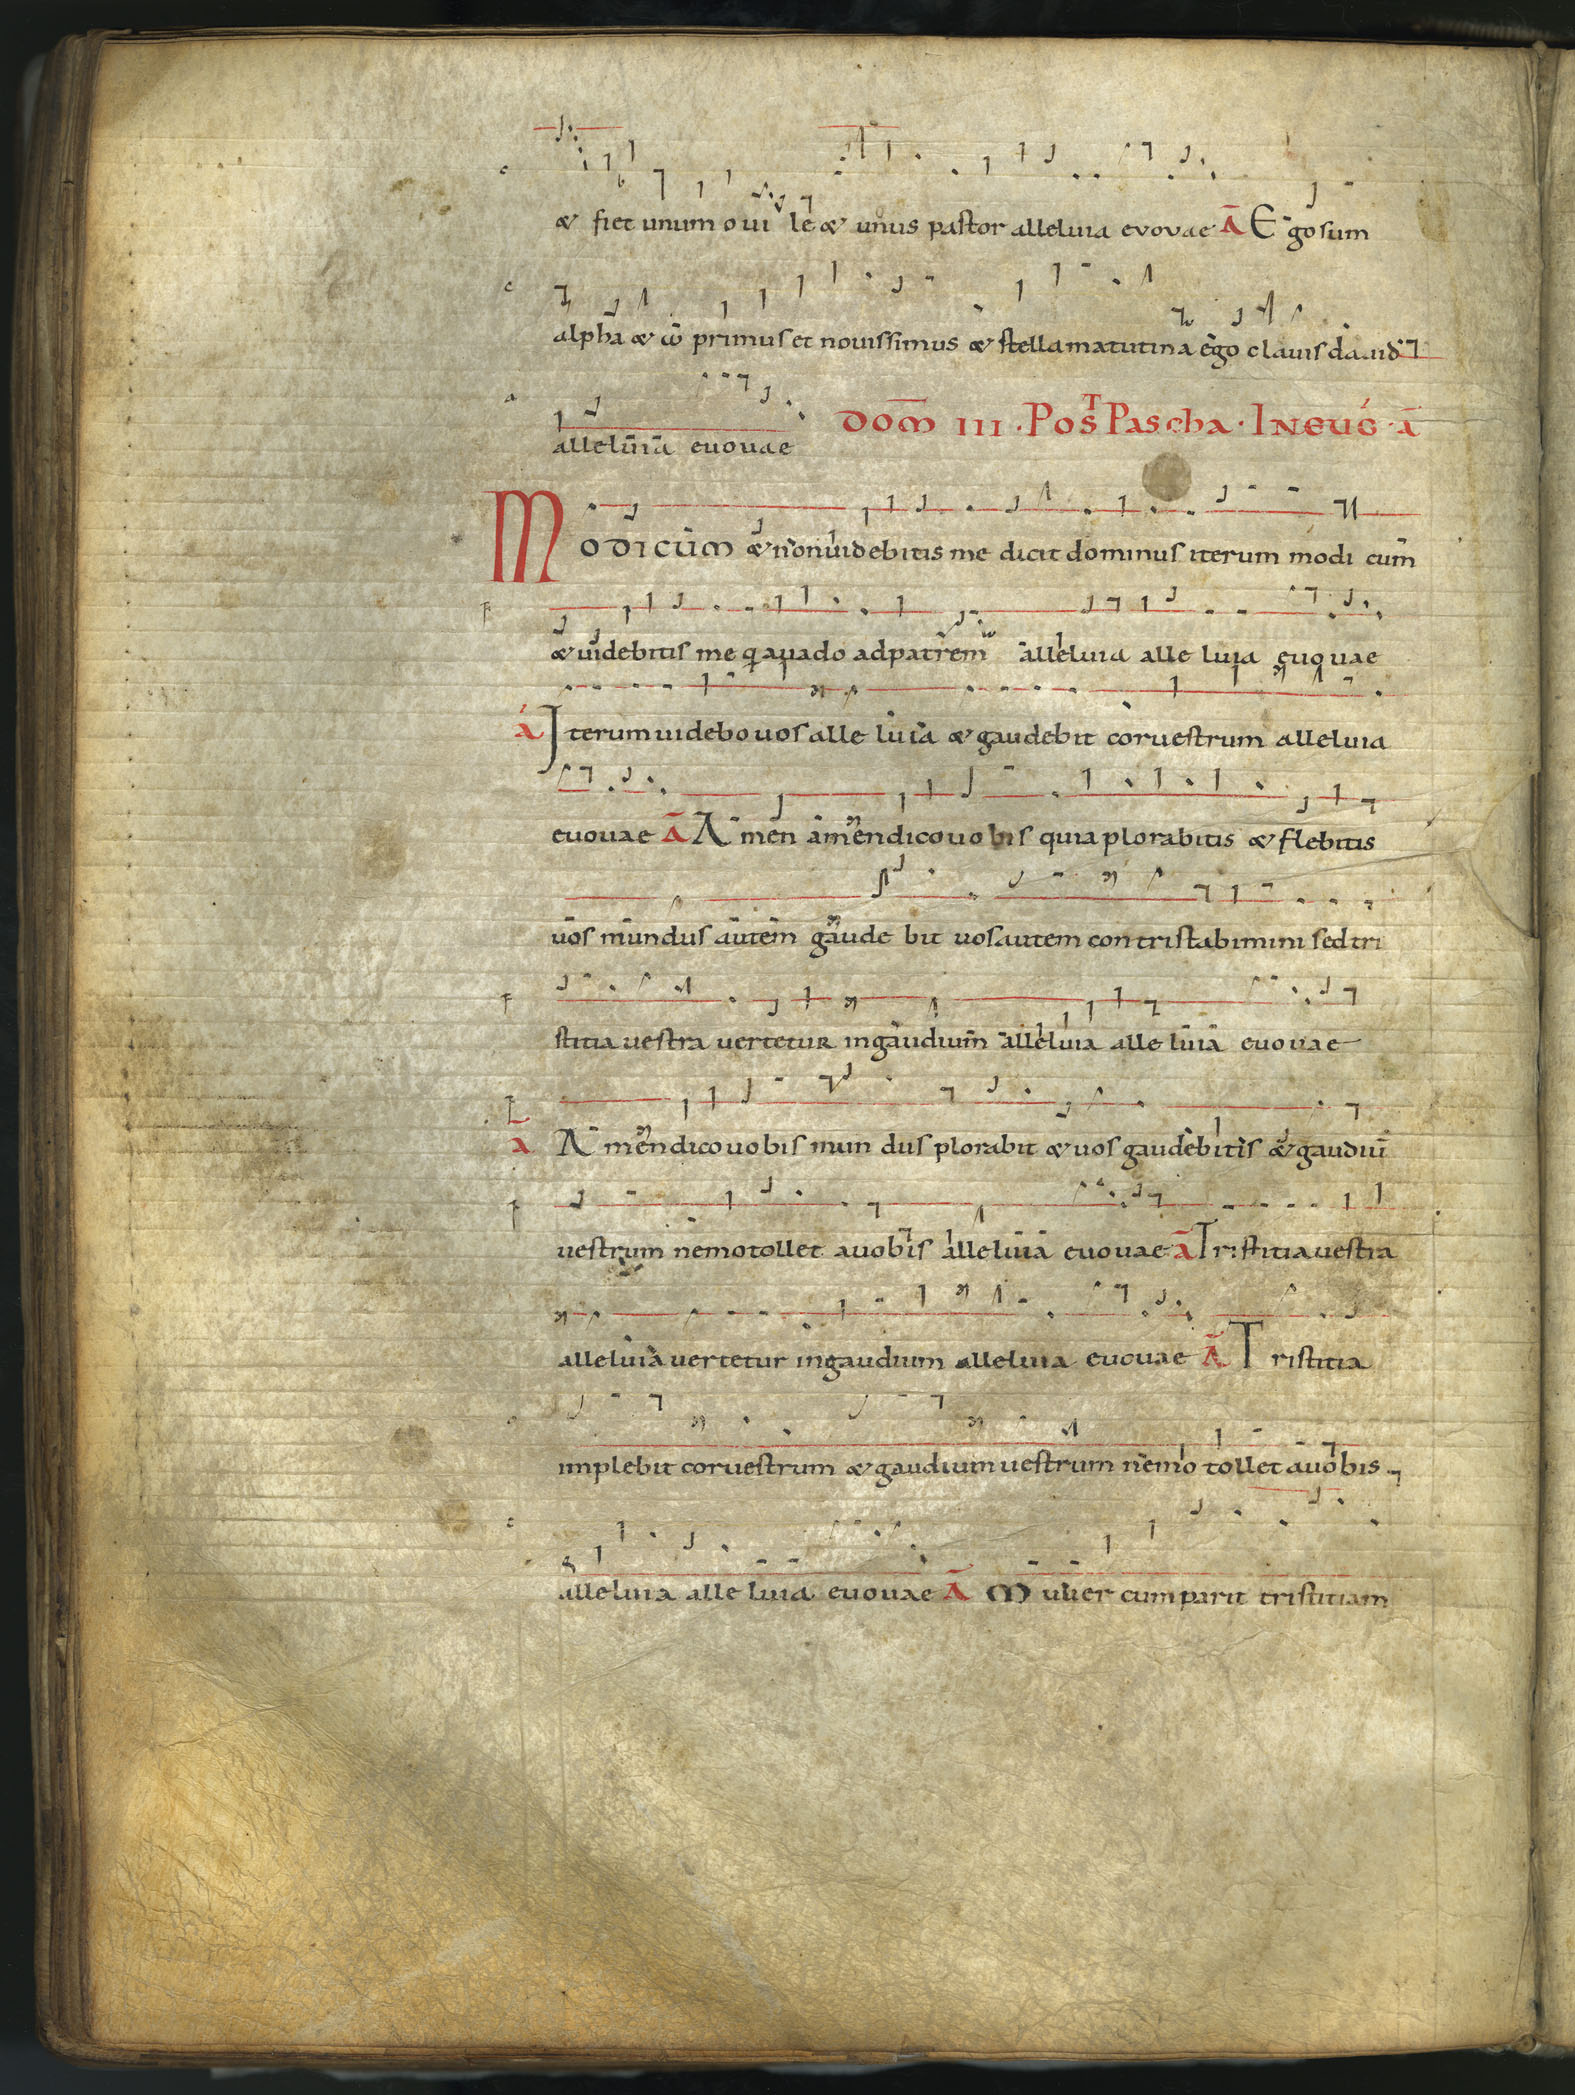 & fiet unum oui le & unus pastor alleluia evovae A Ego sum
alpha & ω primus et nouissimus & stella matutina ego clauis dauid
alleluia euouae DOM III · POST Pascha · IN EUG · A
Modicum & non uidebitis me dicit dominus iterum modi cum
& uidebitis me q a uado ad patrem alleluia alle luia euouae
A Iterum uidebo uos alle luia & gaudebit cor uestrum alleluia
euouae A Amen amen dico uobis quia plorabitis & flebitis
uos mundus autem gaude bit uos autem contristabimini sed tri
stitia uestra uertetur in gaudium alleluia alle luia euouae
A Amen dico uobis mun dus plorabit & uos gaudebitis & gaudiū
uestrum nemo tollet a uobis alleluia euouae A Tristitia uestra
alleluia uertetur in gaudium alleluia euouae A Tristitia
implebit cor uestrum & gaudium uestrum nemo tollet a uobis
alleluia alle luia euouae A Mulier cum parit tristitiam